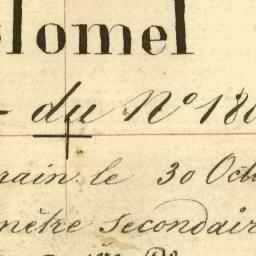 lomel
- du No 180
rain le 30 Octo
mètre secondair